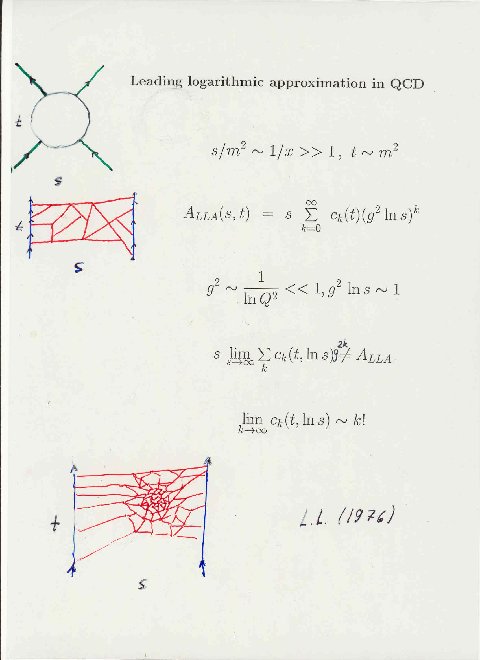 Leading logarithmic approximation in QCD
t
s/m² ~ 1/x >> 1 , t ~ m²
s
t
A_{LLA}(s, t) = s ∑_{k=0}^{∞} c_k(t)(g² ln s)^k
s
g² ~ 1/ln Q² << 1, g² ln s ~ 1
s lim_{s→∞} ∑_k c_k(t, ln s) g^{2k} ≠ A_{LLA}
lim_{k→∞} c_k(t, ln s) ~ k!
t
L.L. (1976)
s